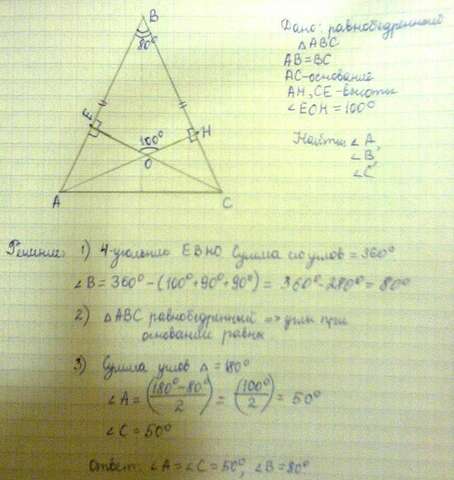 B
80°
E
100°
H
O
A
C
Дано: равнобедренный
△ABC
AB=BC
AC-основание
AH, CE-высоты
∠EOH=100°
Найти ∠A,
∠B,
∠C
Решение: 1) 4-угольник EBHO Сумма его углов = 360°
∠B=360°-(100°+90°+90°)=360°-280°=80°
2) △ABC равнобедренный => углы при
основании равны
3) Сумма углов △=180°
∠A=(180°-80°/2)=(100°/2)=50°
∠C=50°
Ответ: ∠A=∠C=50°, ∠B=80°.